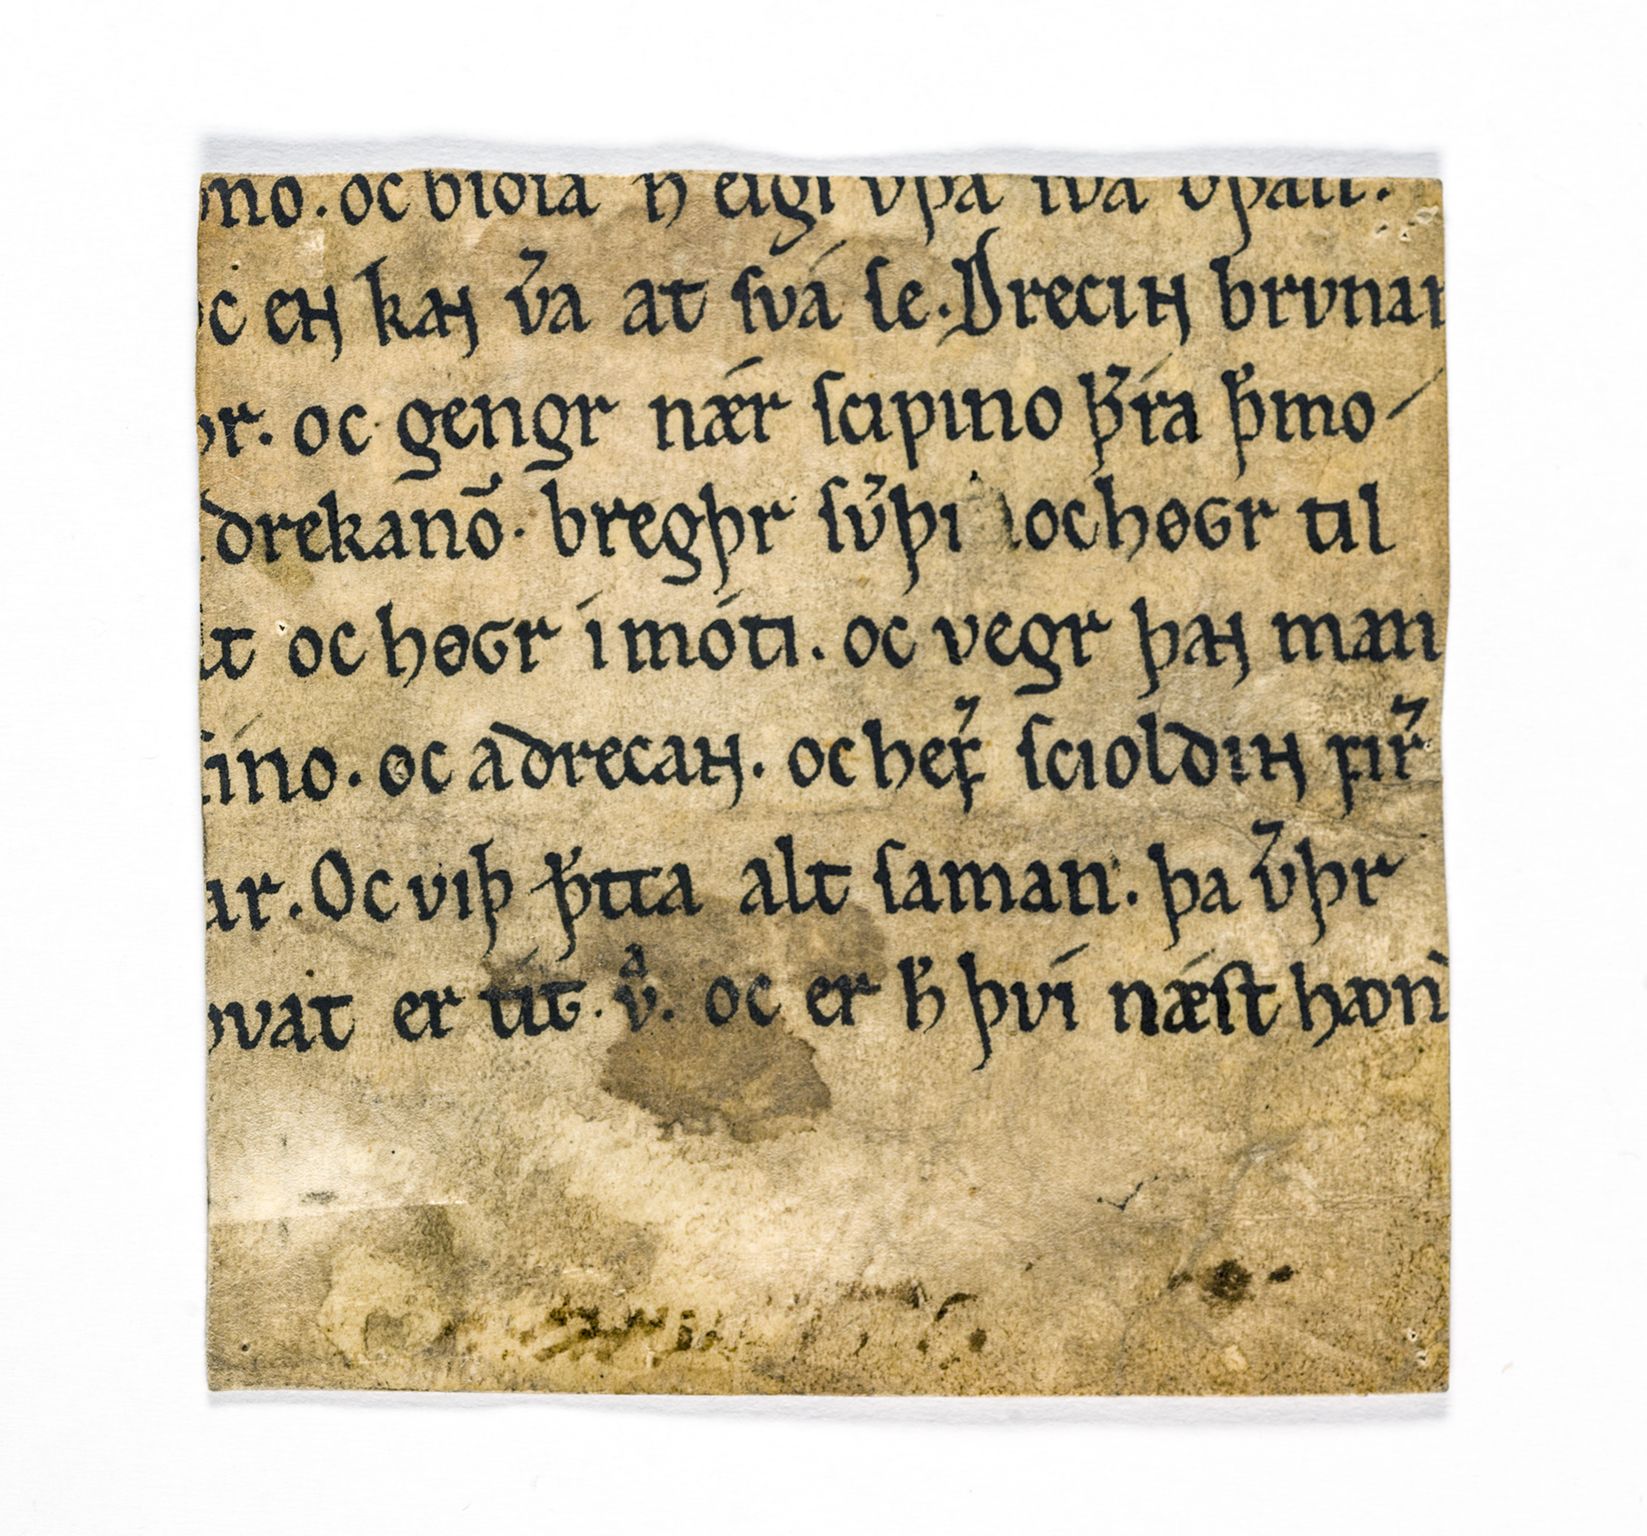 no. oc bioia h̅ eigi vþa sva vþan.
oc eɴ kaɴ v͛a at ſvá ſe. Dreciɴ brvnar
þr. oc gengr nǽr ſcipino þ̅ ſía þ̅mo
drekanō. breghþr ſv͛þi oc høɢr til
at oc høɢr í móti. oc vegr þaɴ man
ſíno. oc a drecaɴ. oc hef͛ ſcioldiɴ fir͛
ar. Oc viþ þ̅tta alt ſaman. þa v͛þr
vát er tít. vͣ. oc er h̅ því næſt hꜵn